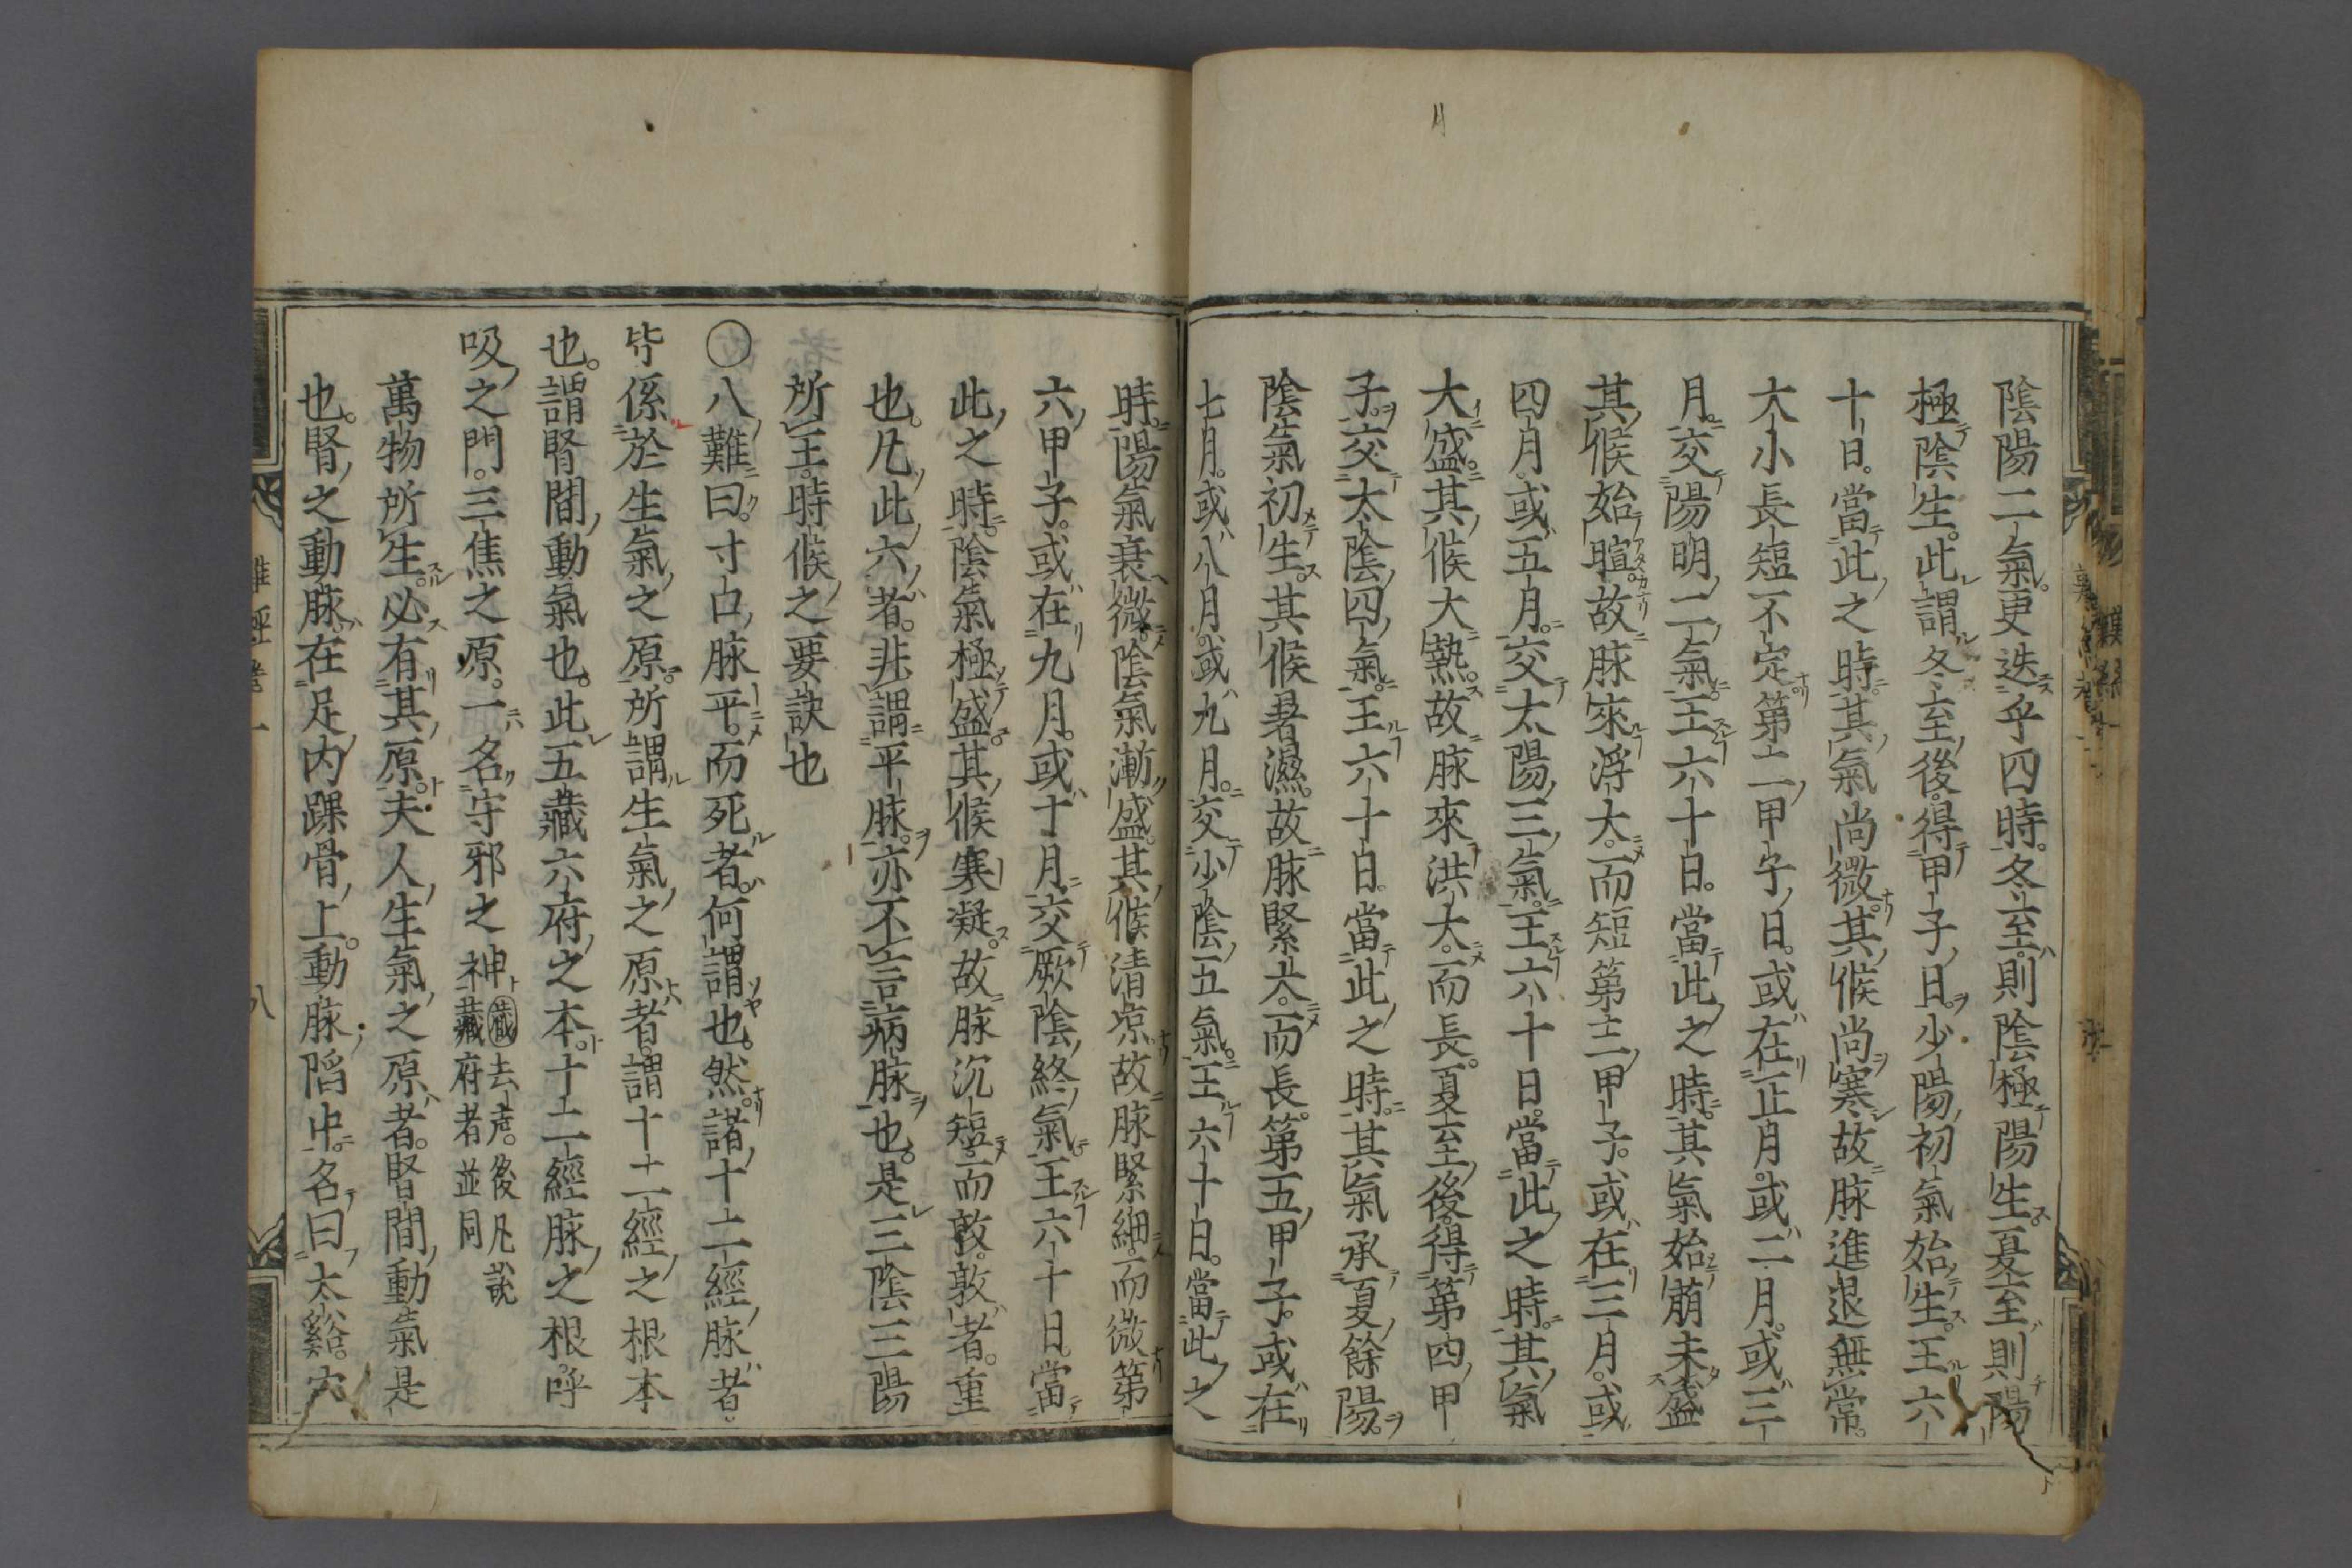 陰陽二氣更迭乎四時冬至則陰極陽生夏至則陽
極陰生此謂冬至後得甲子日少陽初氣始生王六
十日當此之時其氣尚微其候尚寒故脉進退無常
大小長短不定第二甲子日或在正月或二月或三
月交陽明二氣王六十日當此之時其氣始萠未盛
其候始暄故脉來浮大而短第三甲子或在三月或
四月或五月交太陽三氣王六十日當此之時其氣
大盛其候大熱故脉來洪大而長夏至後得第四甲
子交太陰四氣王六十日當此之時其氣承夏餘陽
陰氣初生其候暑濕故脉緊大而長第五甲子或在
七月或八月或九月交少陰五氣王六十日當此之
時陽氣衰微陰氣漸盛其候清凉故脉緊細而微第
六甲子或在九月或十月交厥陰終氣王六十日當
此之時陰氣極盛其候寒凝故脉沉短而敦敦者重
也凡此六者非謂平脉亦不言病脉也是三陰三陽
所王時候之要訣也
〇八難曰寸口脉平而死者何謂也然諸十二經脉者
皆係於生氣之原所謂生氣之原者謂十二經之根本
也謂腎間動氣也此五藏六府之本十二經脉之根呼
吸之門三焦之原一名守邪之神 藏去聲後凡說藏府者並同
萬物所生必有其原夫人生氣之原者腎間動氣是
也腎之動脉在足内踝骨上動脉陷中名曰太谿穴
難經 一 八